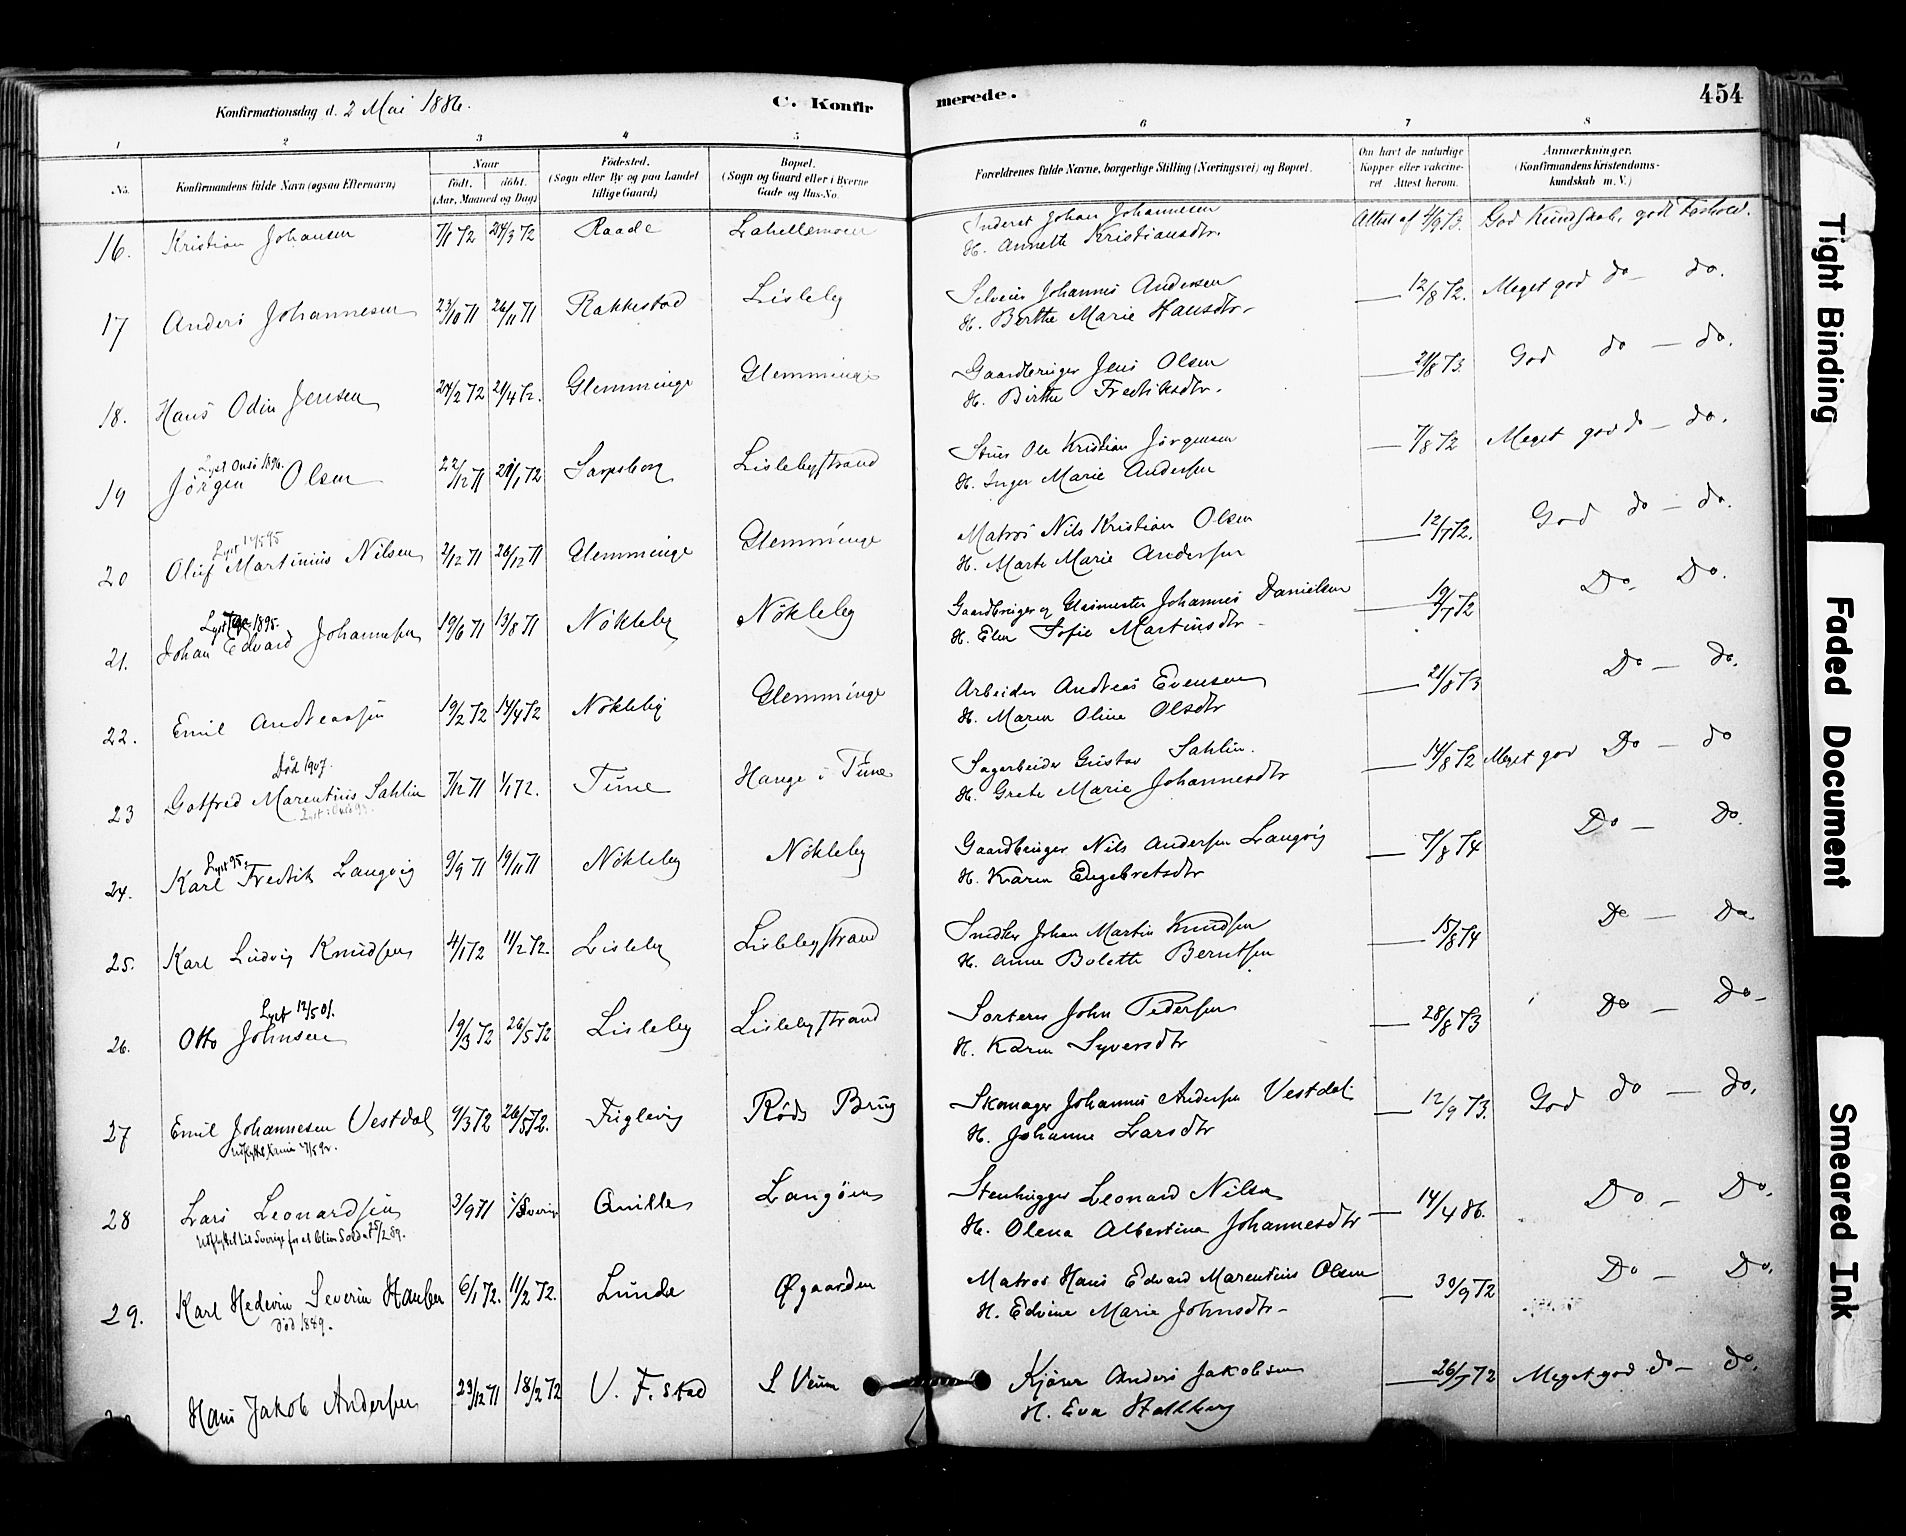 Konfirmationsdag d. 2 Mai 1886.
C. Konfir
merede.
454
1 2 3 4 5 6 7 8
No.
Konfirmandens fulde Navn (ogsaa Efternavn)
Naar
født. døbt.
(Aar, Maaned og Dag)
Fødested.
(Sogn eller By og paa Landet
tillige Gaard)
Bopæl.
(Sogn og Gaard eller i Byerne
Gade og Hus-No.
Forældrenes fulde Navne, borgerlige Stilling (Næringsvei) og Bopæl.
Om havt de naturlige
Kopper eller vakcine-
ret Attest herom.
Anmærkninger.
(Konfirmandens Kristendoms-
kundskab m. V.)
16. Kristian Johansen 7/1 72 24/3 72 Raade Lahellemoen Inderst Johan Johannesen Attest af 4/9 73. God Kundskab, godt Forhold.
H. Annette Kristiansdtr.
17 Anders Johannesen 23/10 71 26/11 71 Rakkestad Lisleby Selveier Johannes Andersen — 12/8 72. Meget god do — do.
H. Berthe Marie Hansdtr.
18. Hans Odin Jensen 24/2 72 21/4 72. Glemminge Glemminge Gaardbruger Jens Olsen — 21/8 73. God do — do.
H. Birthe Fredriksdtr.
Lyst Onsø 1896.
19 Jørgen Olsen 22/12 71 21/1 72 Sarpsborg Lislebystrand Stuer Ole Kristian Jørgensen — 7/8 72 Meget god do — do.
H. Inger Marie Andersen
20 Oluf Martinius Nilsen 2/12 71 26/12 71 Glemminge Glemminge Matros Nils Kristian Olsen — 12/7 72. God do — do.
H. Marte Marie Andersen
Lyst 1895.
21. Johan Edvard Johannesen 19/6 71 13/8 71 Nökleby Nökleby Gaardbruger og Glasmester Johannes Danielsen — 19/7 72 Do. Do.
H. Elen Sofie Martinsdtr
22. Emil Andreassen 19/2 72 14/4 72 Nökleby Glemminge Arbeider Andreas Evensen — 21/8 73 Do — do.
H. Maren Oline Olsdtr
Död 1907.
23 Gotfred Marentius Sahlin 7/12 71 1/1 72. Tune Hauge i Tune Sagarbeider Gustav Sahlin. — 14/8 72 Meget god Do — do
H. Grete Marie Johannesdtr
Lyst 95.
24. Karl Fredrik Langvig 9/9 71 19/11 71 Nökleby Nökleby Gaardbruger Nils Andersen Langvig — 7/8 74 Do — Do.
H. Karen Engebretsdtr
25. Karl Ludvig Knudsen 4/1 72 11/2 72. Lisleby Lislebystrand Snedker Johan Martin Knudsen — 15/8 74 Do — Do
H. Anne Bolette Berntsen
Lyst 12/5 01.
26. Otto Johnsen 19/3 72 26/5 72 Lisleby Lislebystrand Sorterer John Pedersen — 28/8 73 Do — Do
H. Karen Syversdtr
27 Emil Johannesen Vestdal 9/3 72 26/5 72. Fuglevig Röds Brug Skomager Johannes Andersen Vestdal. — 12/9 73. God do — do.
H. Johanne Larsdtr
28 Lars Leonardsen 3/9 71 i Sverig Quille Langöen Stenhugger Leonard Nilsen — 14/4 86. Do — Do.
Udflyttet til Sverige for at blive Soldat 25/2 89.
H. Olena Albertina Johannesdtr
29. Karl Hedevin Severin Hansen 6/1 72. 11/2 72. Lunde Øgaarden Matros Hans Edvard Marentius Olsen — 30/9 72 Do — Do.
död 1889.
H. Edvine Marie Johnsdtr
Hans Jakob Andersen 23/12 71 18/2 72 V. F.stad S Veum Kjører Anders Jakobsen — 26/7 72 Meget god do — do.
H. Eva Stallberg
Tight Binding
Faded Document
Smeared Ink